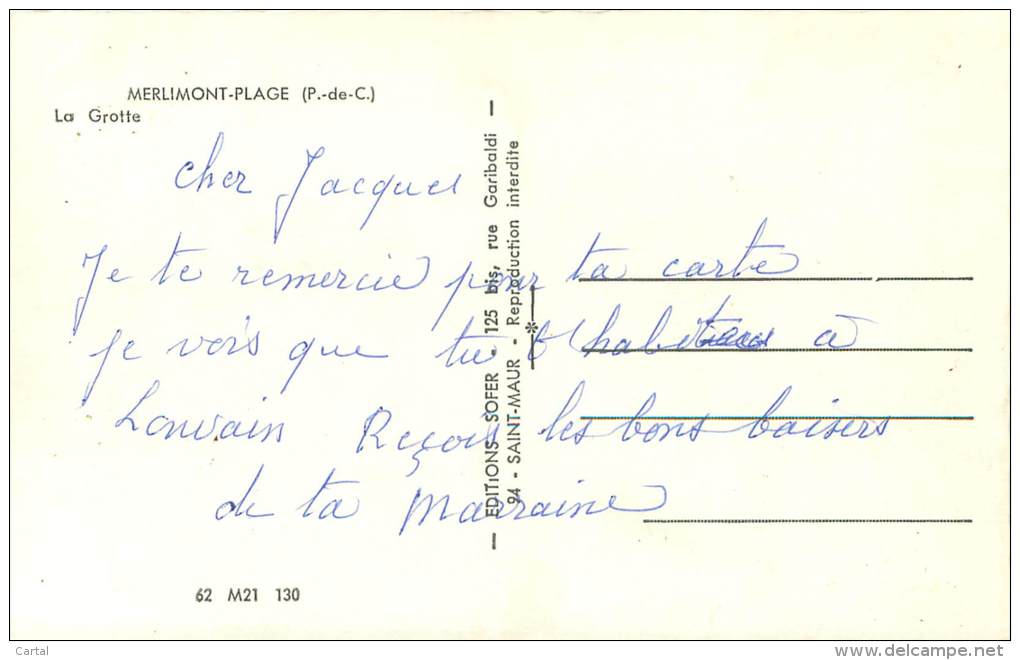 MERLIMONT-PLAGE (P.-de-C.)
La Grotte
cher Jacques
Je te remercie pour ta carte
je vois que tu habites à
Louvain Reçois les bons baisers
de ta Marraine
EDITIONS SOFER - 125 bis, rue Garibaldi
94 - SAINT-MAUR - Reproduction interdite
62 M21 130
Cartal
www.delcampe.net